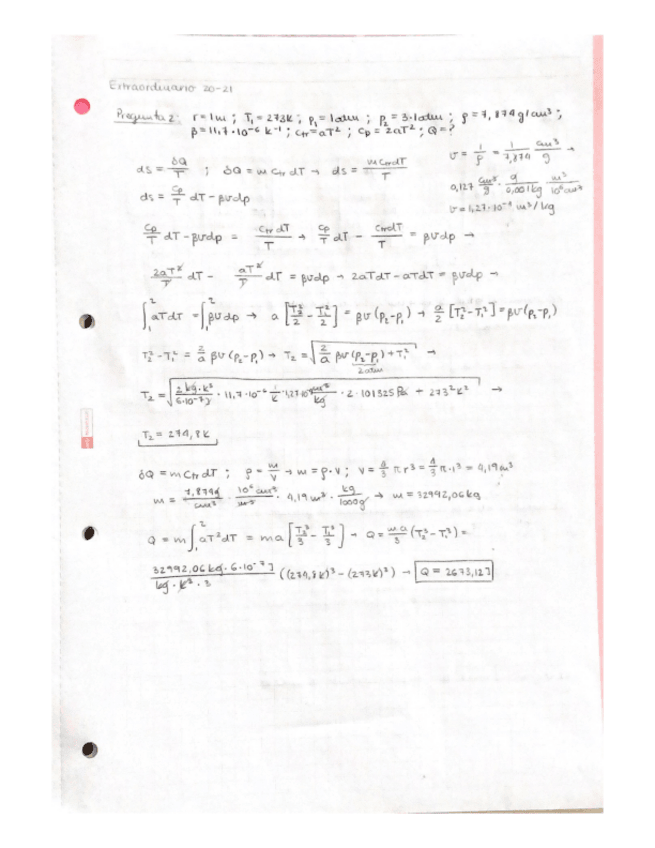 Extraordinario 20-21
Pregunta 2: r=1m ; T₁=273K ; p₁=1atm ; p₂=3·1atm ; ρ=7,874g/cm³ ;
β=11,7·10⁻⁶ K⁻¹ ; Ctr=aT² ; Cp=2aT² ; Q=?
v = 1/ρ = 1/7,874 cm³/g →
ds = δQ/T ; δQ = m Ctr dT → ds = m Ctr dT/T
0,127 cm³/g · g/0,001kg · m³/10⁶cm³
ds = Cp/T dT - βvdp
v=1,27·10⁻⁴ m³/kg
Cp/T dT - βvdp = Ctr dT/T → Cp/T dT - Ctr dT/T = βvdp →
2aT²/T dT - aT²/T dT = βvdp → 2aTdT - aTdT = βvdp →
∫₁² aTdT = ∫₁² βvdp → a [T₂²/2 - T₁²/2] = βv (p₂-p₁) → a/2 [T₂²-T₁²] = βv(p₂-p₁)
T₂²-T₁² = 2/a βv (p₂-p₁) → T₂ = √(2/a βv (p₂-p₁) + T₁²) →
2atm
T₂ = √(2 kg·K³/6·10⁻⁷J · 11,7·10⁻⁶ 1/K · 1,27·10⁻⁴ m³/kg · 2·101325 Pa + 273²K²) →
T₂ = 274,8K
δQ = m Ctr dT ; ρ = m/V → m = ρ·V ; V = 4/3 π r³ = 4/3 π·1³ = 4,19m³
m = 7,874g/cm³ · 10⁶cm³/m³ · 4,19m³ · kg/1000g → m = 32992,06kg
Q = m ∫₁² aT²dT = ma [T₂³/3 - T₁³/3] → Q = ma/3 (T₂³-T₁³) =
32992,06kg·6·10⁻⁷J/kg·K³·3 ((274,8K)³-(273K)³) → Q = 2673,12J